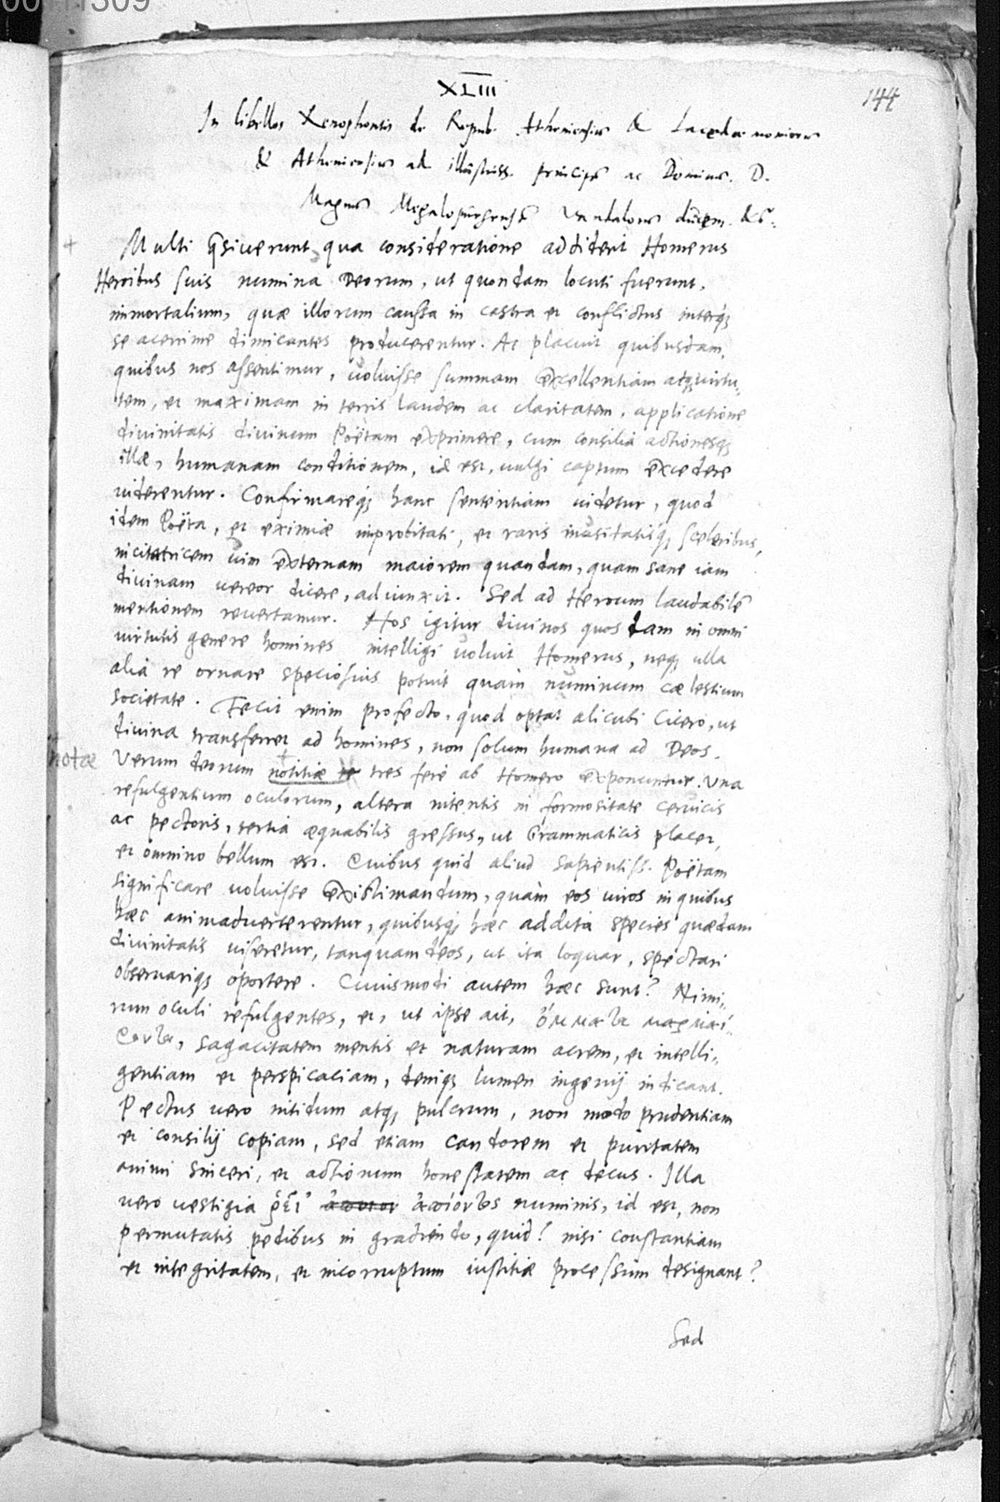 XLIII
144
In libellos Xenophontis de Repub. Atheniensiū & Lacedæmoniorū
& Atheniensiū ad illustriss. principē ac Dominū. D.
Magnū Megalopurgensē Vandalorū ducem. &c.
Multi q̃siuerunt qua consideratione addiderit Homerus
Heroibus suis numina Deorum, ut quondam locuti fuerunt,
immortalium, quæ illorum caussa in castra et conflictus interq;
se acerrime dimicantes producerentur. Ac placuit quibusdam,
quibus nos assentimur, uoluisse summam excellentiam atq; uirtu,,
tem, et maximam in terris laudem ac claritatem, applicatione
diuinitatis diuinum Poëtam exprimere, cum consilia actionesq;
illæ, humanam conditionem, id est, uulgi captum excedere
uiderentur. Confirmareq; hanc sententiam uidetur, quod
idem Poëta, et eximiæ improbitati, et raris inusitatisq; sceleribus,
incitatricem uim externam maiorem quandam, quam sane iam
diuinam uereor dicere, adiunxit. Sed ad Heroum laudabilē
mentionem reuertamur. Hos igitur diuinos quosdam in omni
uirtutis genere homines intelligi uoluit Homerus, neq; ulla
alia re ornare speciosius potuit quàm numinum cælestium
societate. Fecit enim profecto, quod optat alicubi Cicero, ut
diuina transferret ad homines, non solum humana ad Deos.
notæ
Verum deorum notitiæ tres ferè ab Homero exponuntur. Una
refulgentium oculorum, altera nitentis in formositate ceruicis
ac pectoris, tertia æquabilis gressus, ut Grammaticis placet,
et omnino bellum est. Quibus quid aliud sapientiss. Poëtam
significare uoluisse existimandum, quàm eos uiros in quibus
hæc animaduerterentur, quibusq; hæc addita species quædam
diuinitatis uiseretur, tanquam deos, ut ita loquar, spectari
obseruariq; oportere. Cuiusmodi autem hæc sunt? Nimi,,
rum oculi refulgentes, et, ut ipse ait, ὄμματα μαρμαί,,
ροντα, sagacitatem mentis et naturam acrem, et intelli,,
gentiam et perspicaciam, deniq; lumen ingenij indicant.
Pectus uero nitidum atq; pulcrum, non modo prudentiam
et consilij copiam, sed etiam candorem et puritatem
animi sinceri, et actionum honestatem ac decus. Illa
uero uestigia ῥεῖ' ἀπιόντος numinis, id est, non
permutatis pedibus in gradiendo, quid? nisi constantiam
et integritatem, et incorruptum iustitiæ processum designant?
Sed